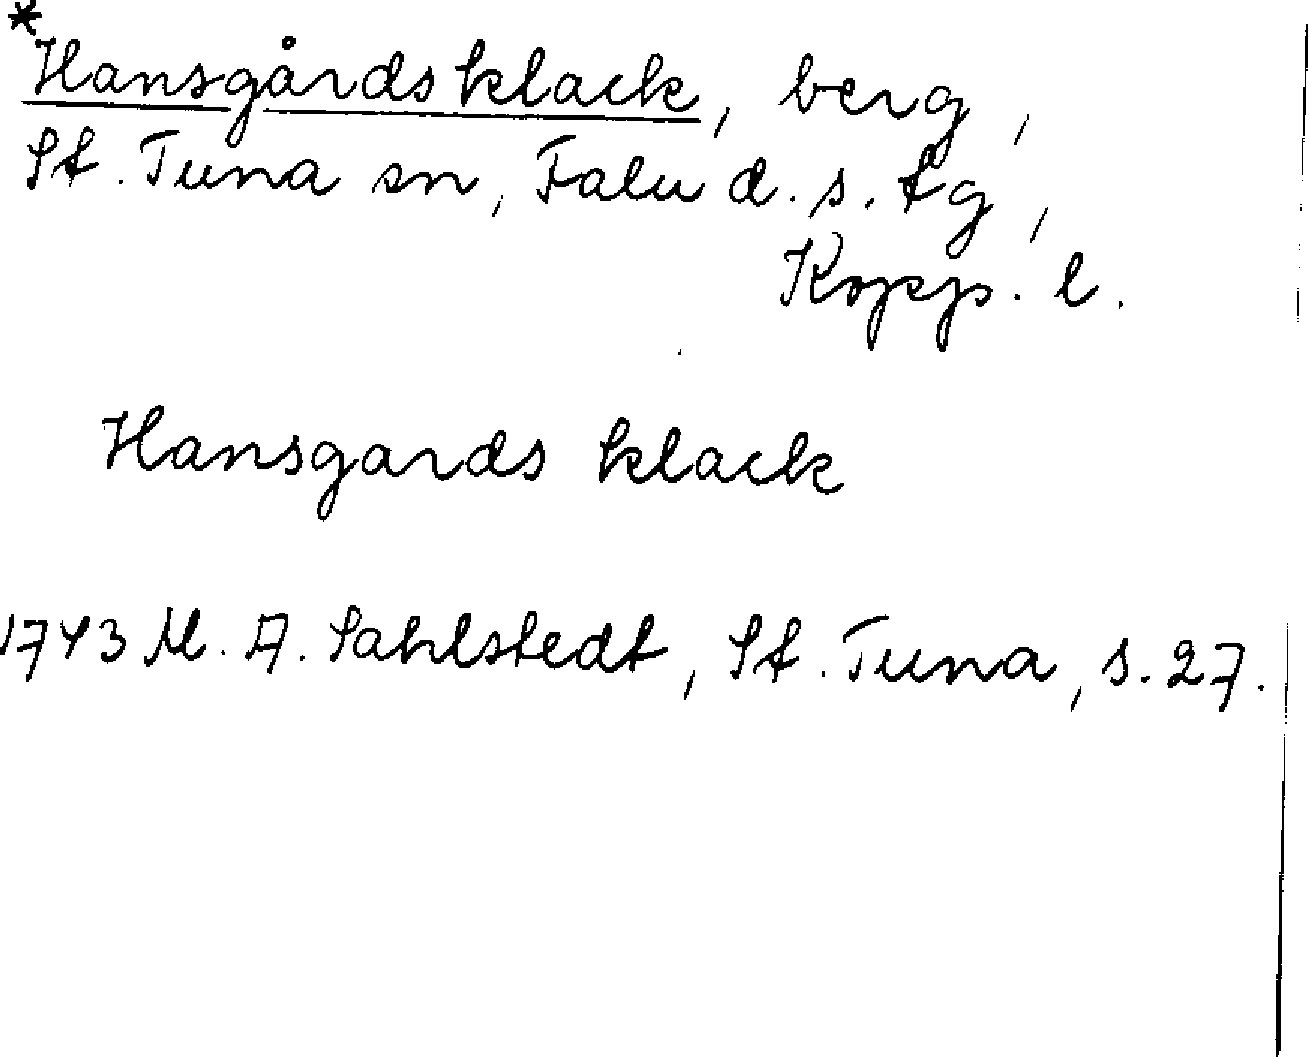 *Hansgårdsklack, berg,
St. Tuna sn, Falu d. s. tg,
Kopp. l.
Hansgards klack
1743 M. A. Sahlstedt, St. Tuna, s. 27.